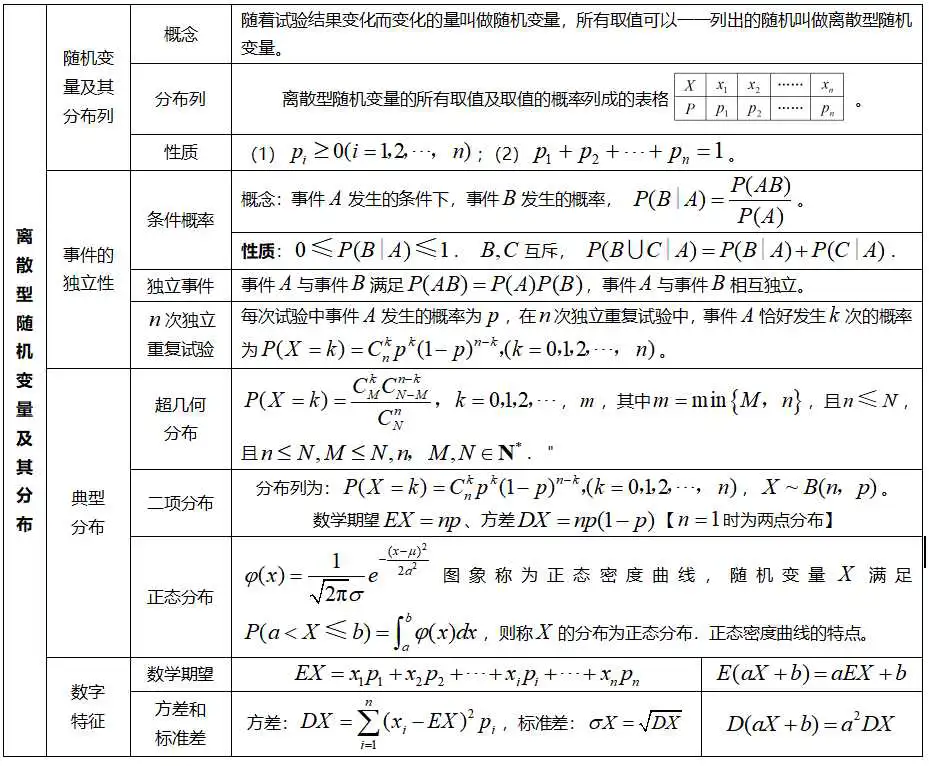 离散型随机变量及其分布
随机变
量及其
分布列
概念
随着试验结果变化而变化的量叫做随机变量，所有取值可以一一列出的随机叫做离散型随机
变量。
分布列
离散型随机变量的所有取值及取值的概率列成的表格 X x₁ x₂ …… xₙ 。
P p₁ p₂ …… pₙ
性质
（1） pᵢ ≥ 0(i = 1,2, ⋯, n)；（2） p₁ + p₂ + ⋯ + pₙ = 1。
事件的
独立性
条件概率
概念：事件 A 发生的条件下，事件 B 发生的概率， P(B | A) = P(AB)/P(A)。
性质：0 ≤ P(B | A) ≤ 1． B,C 互斥， P(B⋃C | A) = P(B | A) + P(C | A)．
独立事件
事件 A 与事件 B 满足 P(AB) = P(A)P(B)，事件 A 与事件 B 相互独立。
n 次独立
重复试验
每次试验中事件 A 发生的概率为 p，在 n 次独立重复试验中，事件 A 恰好发生 k 次的概率
为 P(X = k) = Cₙᵏ pᵏ(1 − p)ⁿ⁻ᵏ,(k = 0,1,2, ⋯, n)。
典型
分布
超几何
分布
P(X = k) = C_M^k C_{N−M}^{n−k} / C_N^n， k = 0,1,2, ⋯， m，其中 m = min{M，n}，且 n ≤ N，
且 n ≤ N, M ≤ N, n，M, N ∈ N*． "
二项分布
分布列为：P(X = k) = Cₙᵏ pᵏ(1 − p)ⁿ⁻ᵏ,(k = 0,1,2, ⋯, n)，X ~ B(n，p)。
数学期望 EX = np、方差 DX = np(1 − p)【n = 1 时为两点分布】
正态分布
φ(x) = 1/(√(2π)σ) e^{−(x−μ)²/(2a²)} 图象称为正态密度曲线，随机变量 X 满足
P(a < X ≤ b) = ∫_a^b φ(x)dx，则称 X 的分布为正态分布．正态密度曲线的特点。
数字
特征
数学期望
EX = x₁p₁ + x₂p₂ + ⋯ + xᵢpᵢ + ⋯ + xₙpₙ
E(aX + b) = aEX + b
方差和
标准差
方差：DX = ∑_{i=1}^{n} (xᵢ − EX)² pᵢ，标准差：σX = √DX
D(aX + b) = a²DX